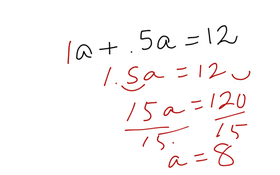 1a + .5a = 12
1.5a = 12
15a = 120
15. 15
a = 8